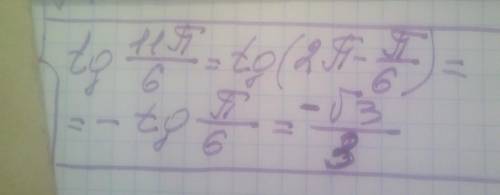 tg 11π/6 = tg(2π - π/6) =
= - tg π/6 = -√3/3